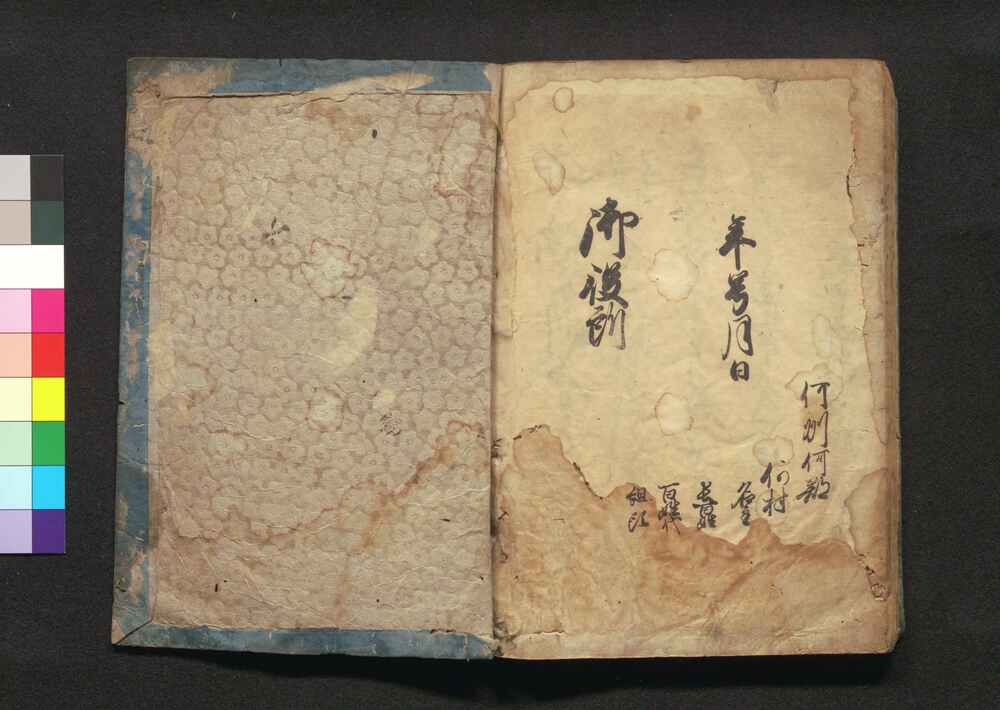 何州何郡
何村
名主
長百姓
百姓代
組頭
年号月日
御役所